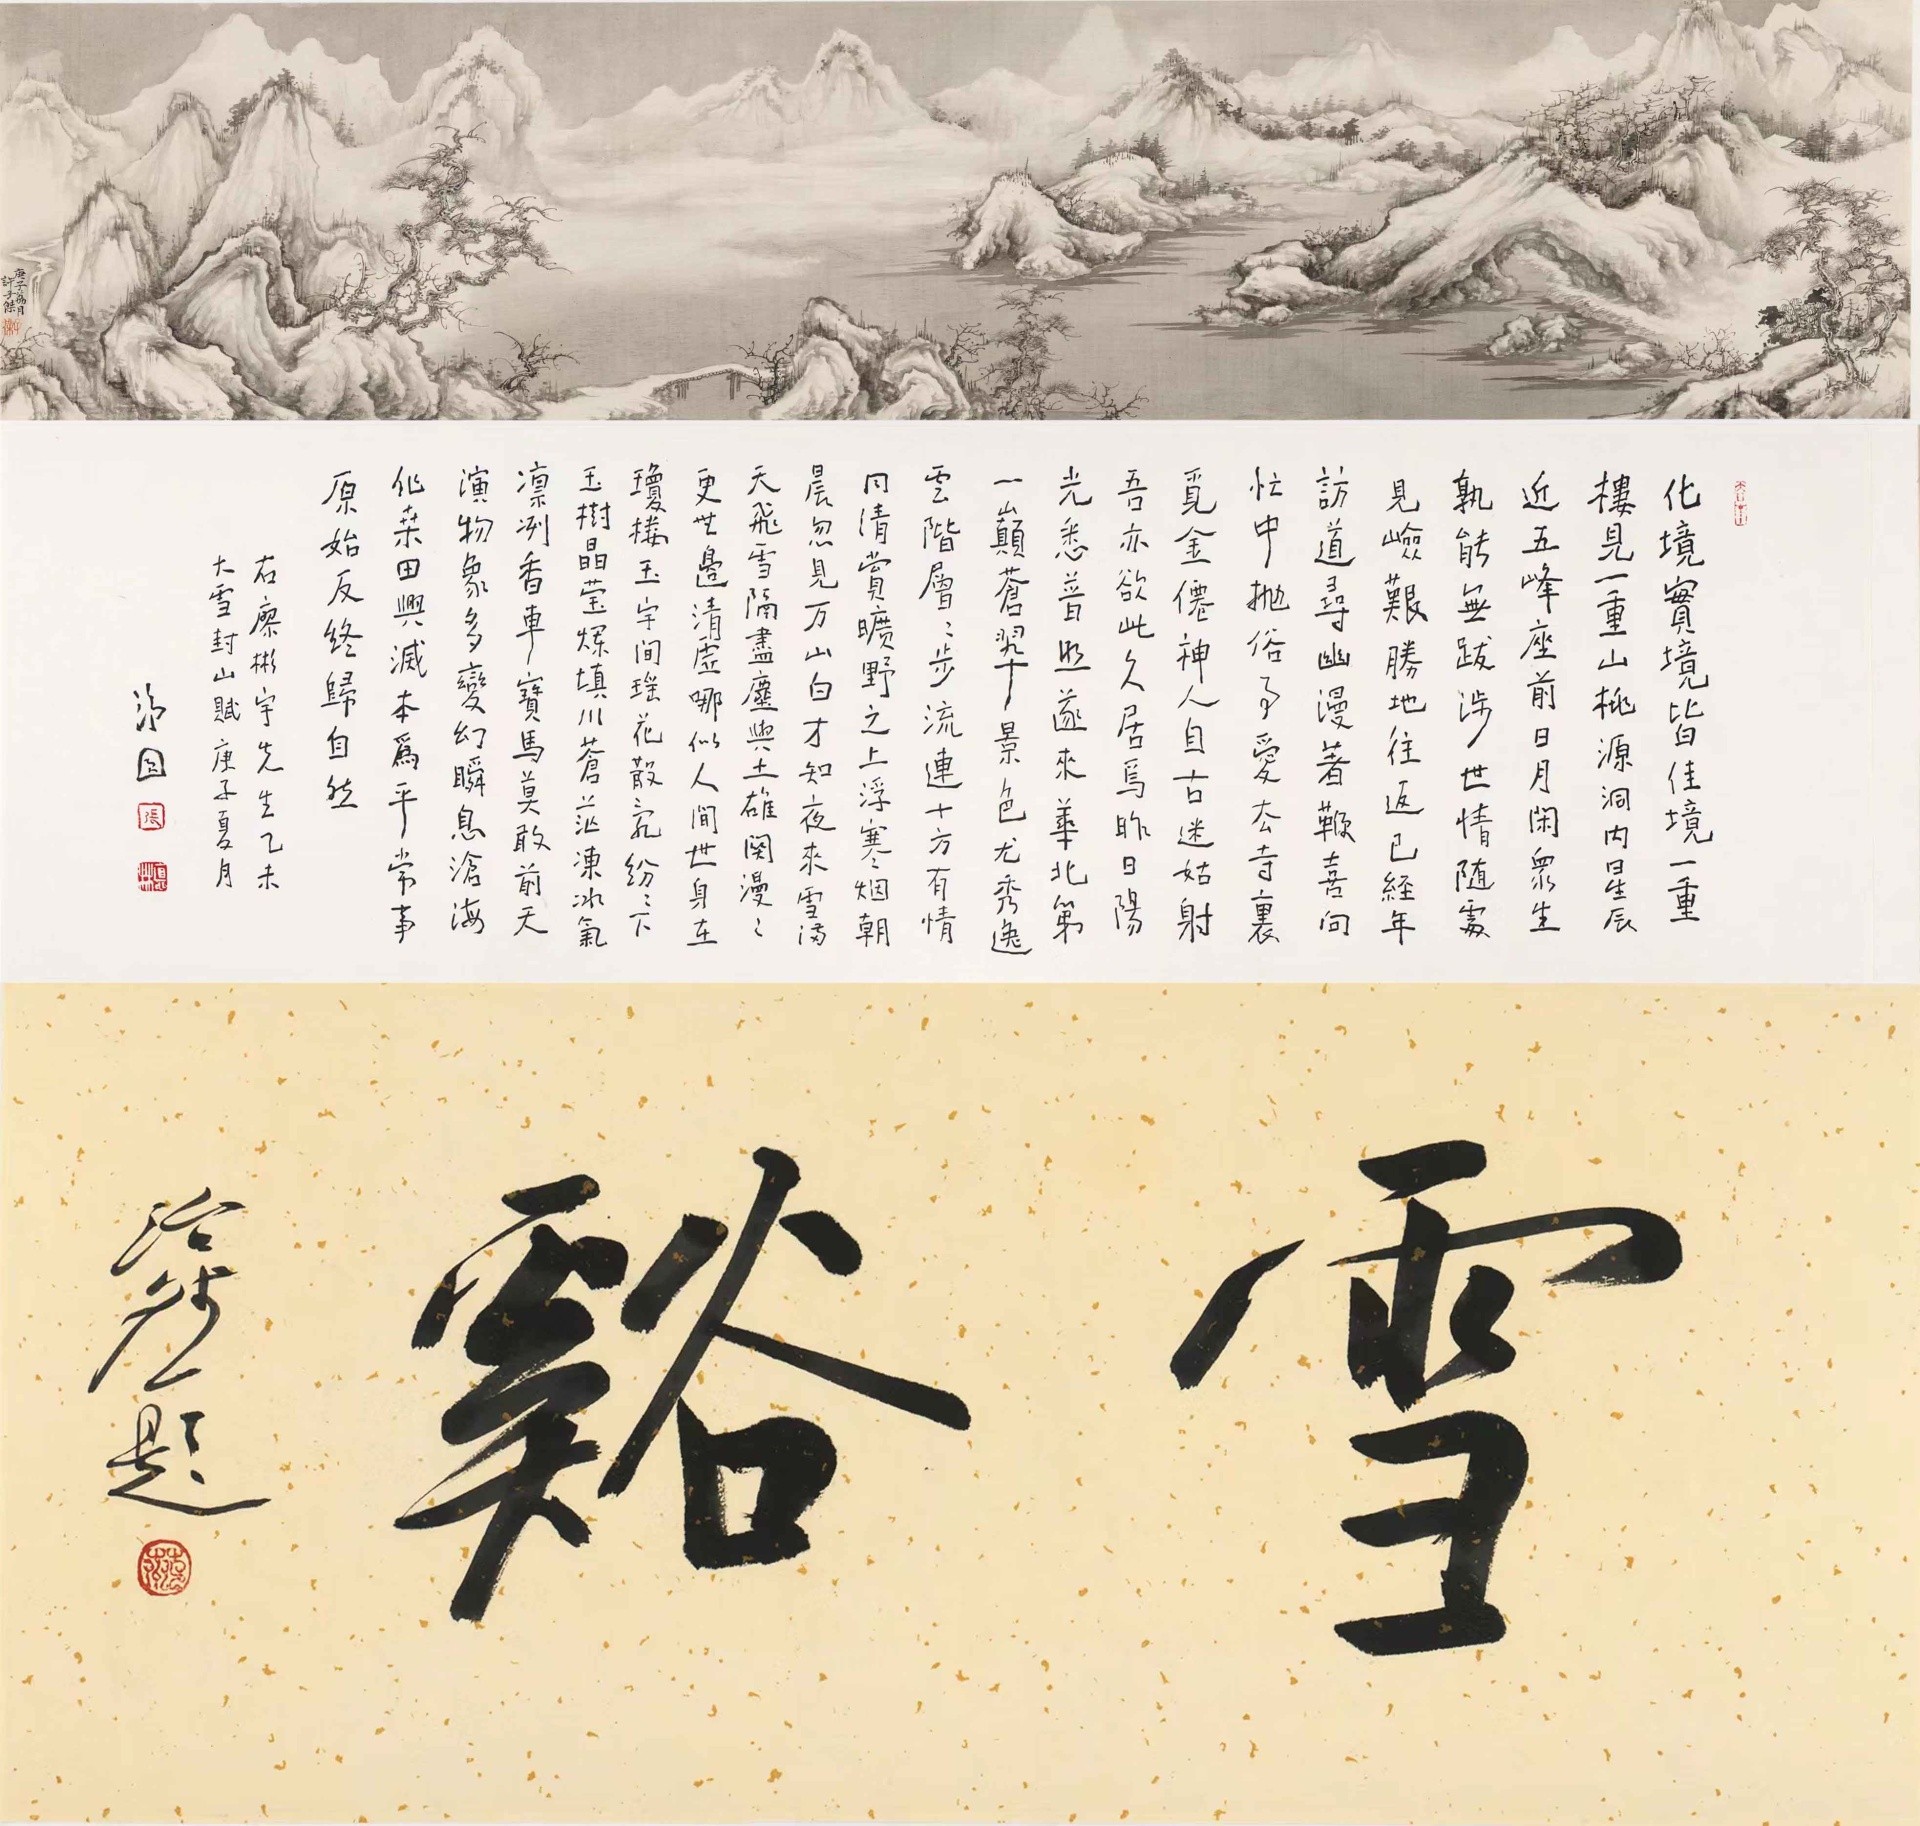 庚子荔月
許子傑
化境實境皆佳境一重
樓見一重山桃源洞内星辰
近五峰座前日月閑眾生
孰能無跋涉世情随處
見嶮艱勝地往返已經年
訪道尋幽漫著鞭喜向
忙中抛俗事愛去寺裏
覓金僊神人自古迷姑射
吾亦欲此久居焉昨日陽
光悉普照遂來華北第
一巔蒼翠千景色尤秀逸
雲階層〻步流連十方有情
同清賞曠野之上浮寒烟朝
晨忽見万山白才知夜來雪滿
天飛雪隔盡塵與土雄関漫〻
更無邊清虛哪似人間世身在
瓊楼玉宇間瑶花散亂紛〻下
玉樹晶莹爍填川蒼茫凍冰氣
凛冽香車寶馬莫敢前天
演物象多變幻瞬息滄海
化桒田興滅本爲平常事
原始反終歸自然
右廖彬宇先生乙未
大雪封山賦庚子夏月
雪谿
題